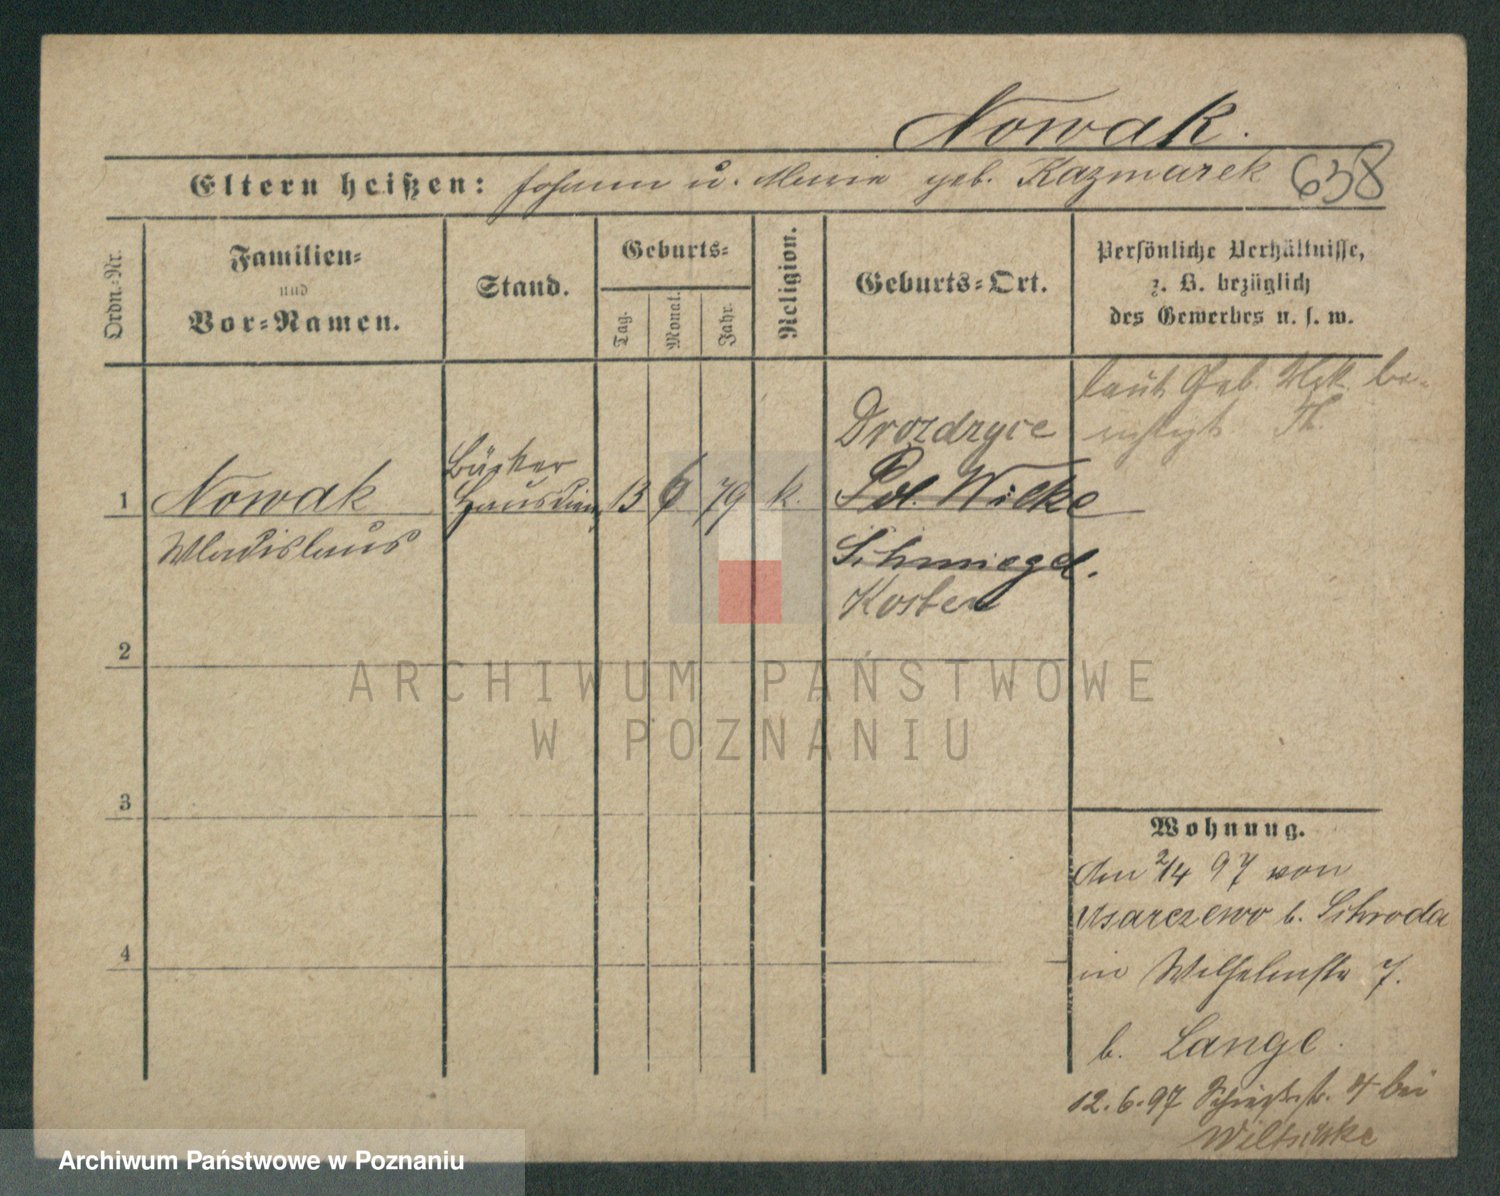 Nowak.
Eltern heißen: Johann u. Maria geb. Kazmarek 638
Ordn.-Nr.
Familien-
und
Vor-Namen.
Stand.
Geburts-
Tag.
Monat.
Jahr.
Religion.
Geburts-Ort.
Persönliche Verhältnisse,
z. B. bezüglich
des Gewerbes u. s. w.
laut Geb. Urk. be-
richtigt Th.
1
Nowak
Wladislaus
Bäcker
Hausdien
13
6
79
k.
Drozdzyce
Pol. Wilke
Schmiegel.
Kosten
2
3
4
Wohnung.
Am 2/4 97 von
Usarzewo b. Schroda
in Wilhelmstr 7.
b. Lange.
12.6.97 4 bei
ARCHIWUM PAŃSTWOWE
W POZNANIU
Archiwum Państwowe w Poznaniu